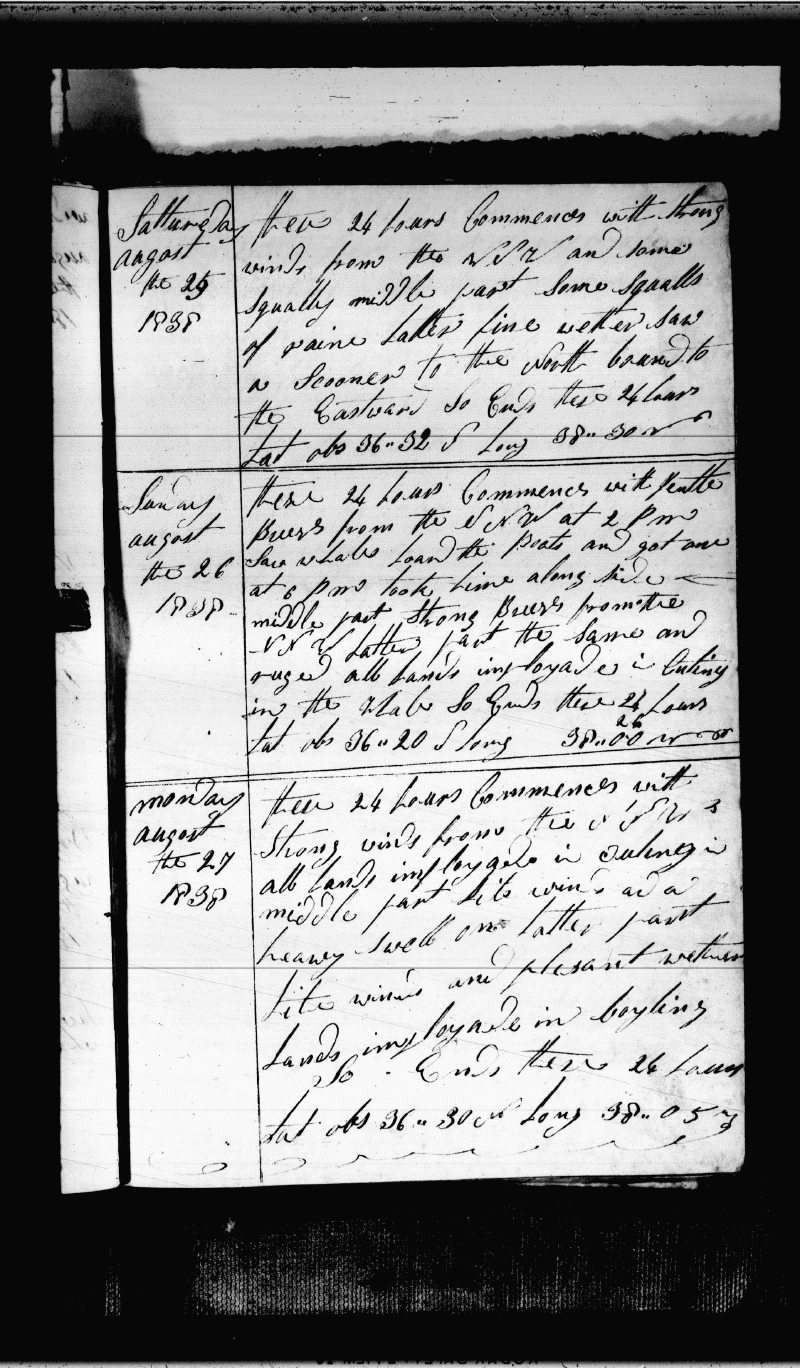 Satturday
august
the 25
1838
these 24 hours Commences with strong
winds from the and some
squally middle part some squalls
of raine Latter fine wether saw
a Scooner to the North bound to
the Eastward So Ends these 24 hours
Lat obs 36"32 Long 38"30
Sunday
august
the 26
1838
these 24 hours Commences with Jentle
Breess from the at 2 P m
Saw whales loard the Boats and got one
at 6 P m took hime along side
middle part Strong Breess from the
Latter part the same and
ruged all hands imployade in Cuting
in the Whale So Ends these 24 hours
Lat obs 36"20 S Long 38"00
26
monday
august
the 27
1838
these 24 hours Commences with
Strong winds from the
all hands imployade in
middle part Lite winds and a
heavy swell on latter part
Lite winds and plesant wether
hands imployade in boyling
So Ends these 24 hours
Lat obs 36"30 Long 38"05